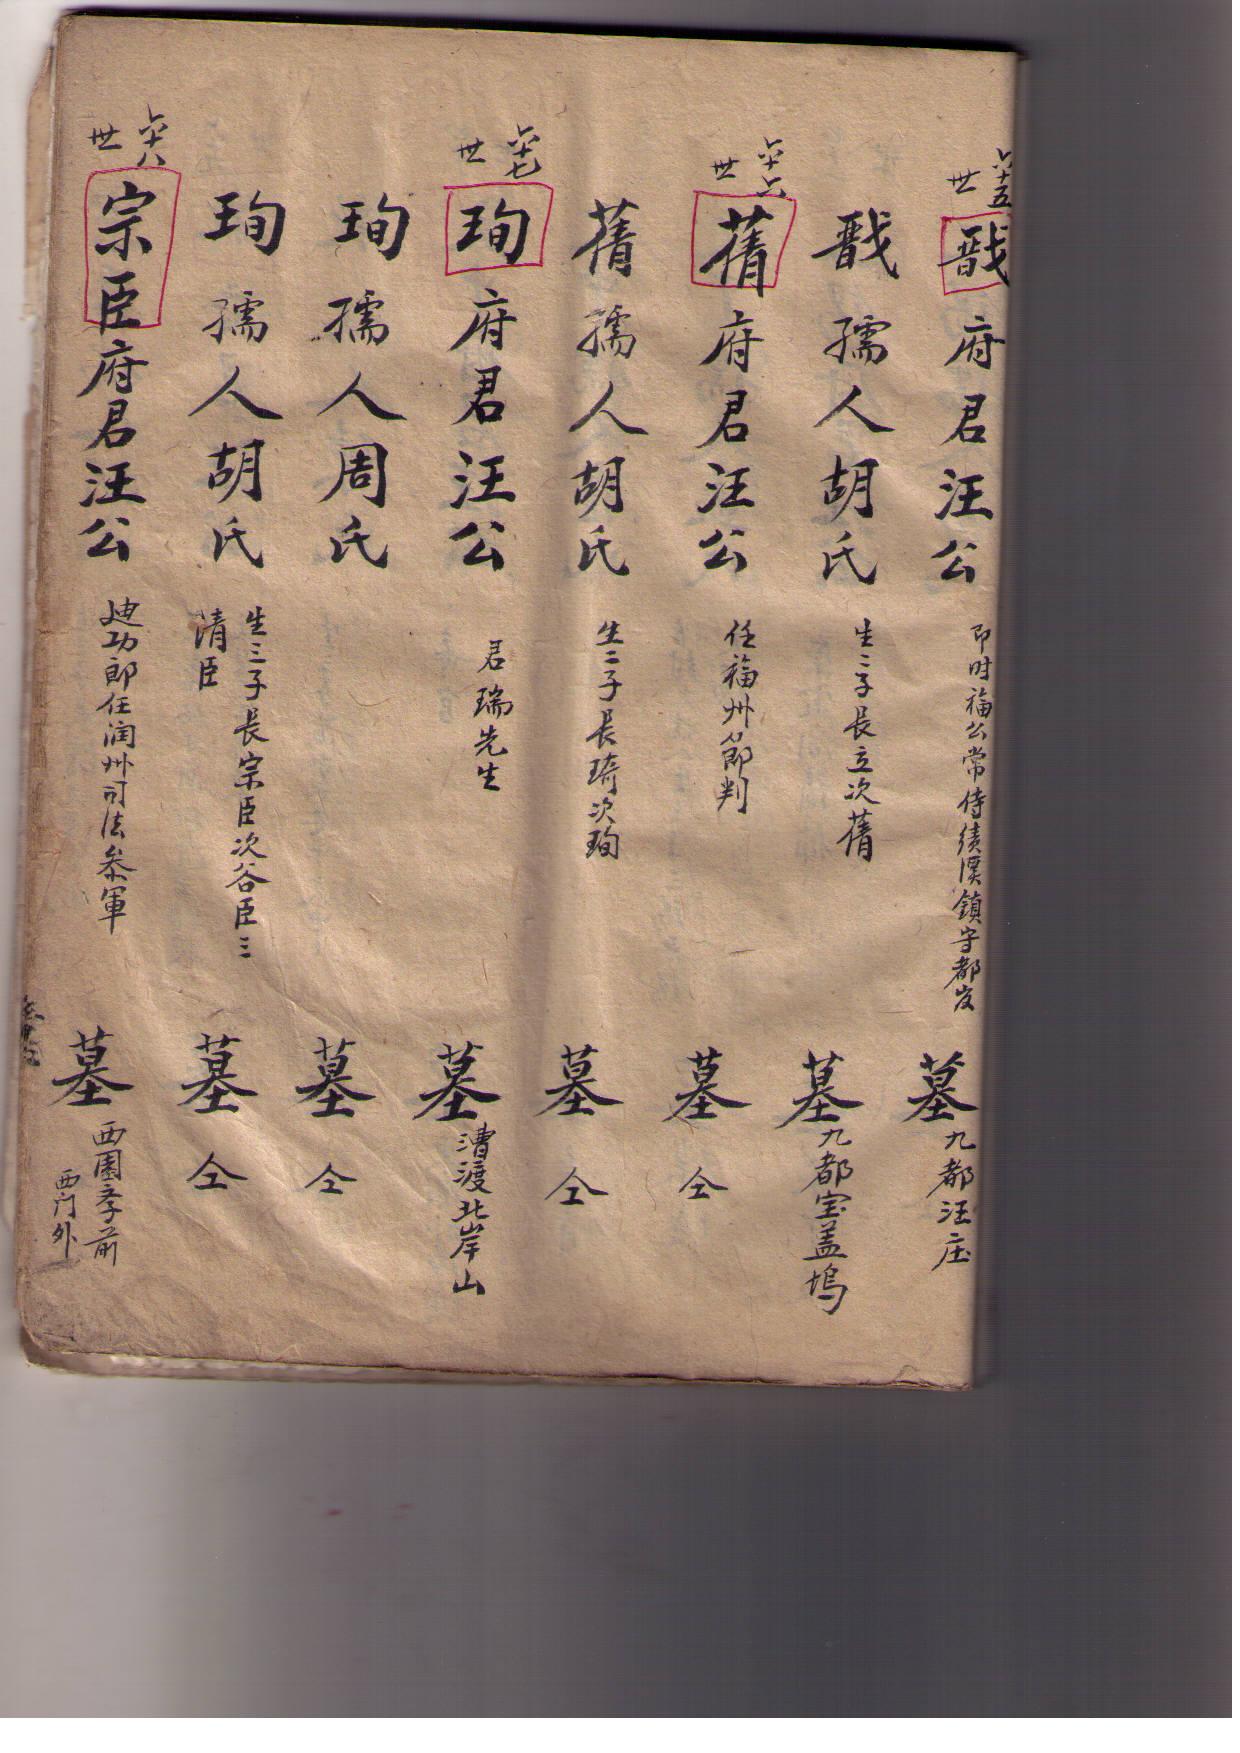 六十五世
戬府君汪公 即时福公常侍绩溪鎮守都 墓 九都汪庄
戬孺人胡氏 生二子長立次蒨 墓 九都宝盖塢
六十六世
蒨府君汪公 任福州節判 墓 仝
蒨孺人胡氏 生二子長琦次珣 墓 仝
六十七世
珣府君汪公 君瑞先生 墓 漕渡北岸山
珣孺人周氏 墓 仝
珣孺人胡氏 生三子長宗臣次谷臣三
清臣 墓 仝
六十八世
宗臣府君汪公 迪功郎任润州司法叅軍 墓 西園亭前
西门外